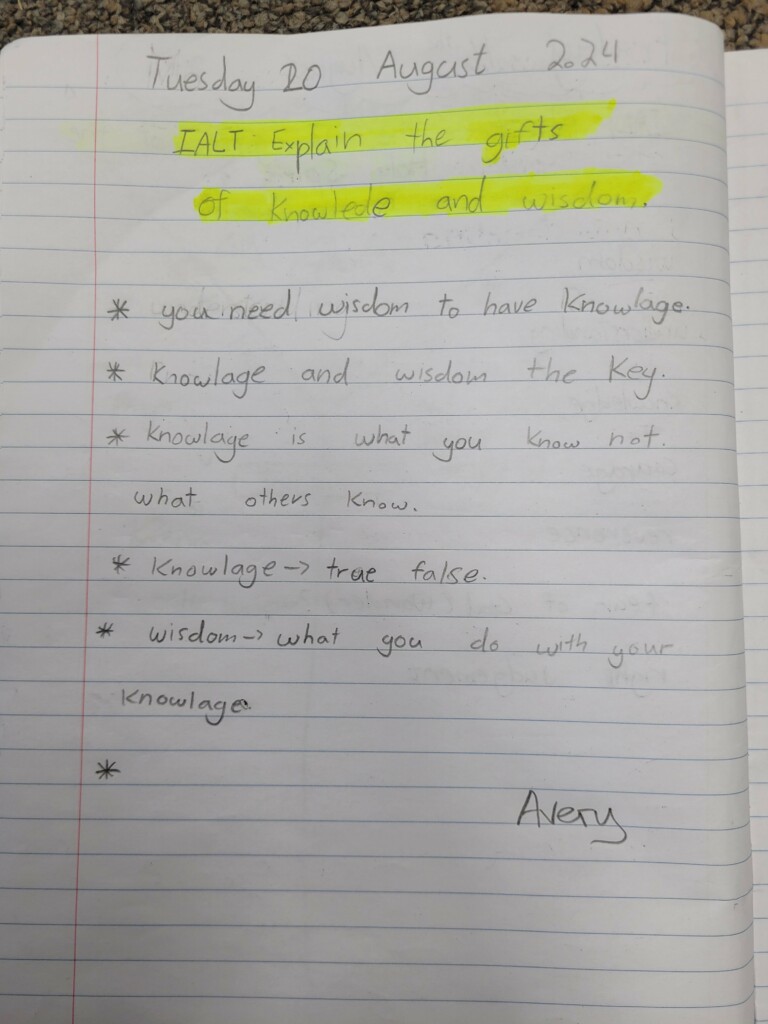 Tuesday 20 August 2024
IALT Explain the gifts
of Knowlede and wisdom.
* you need wisdom to have Knowlage.
* Knowlage and wisdom the Key.
* Knowlage is what you know not.
what others Know.
* Knowlage -> true false.
* wisdom -> what you do with your
Knowlage
*
Avery